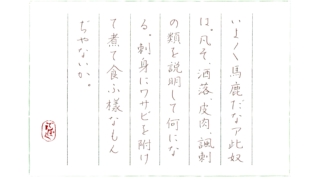 いよ〳〵馬鹿だなア此奴
は。凡そ、洒落、皮肉、諷刺
の類を説明して何にな
る。刺身にワサビを附け
て煮て食ふ様なもん
ぢやないか。